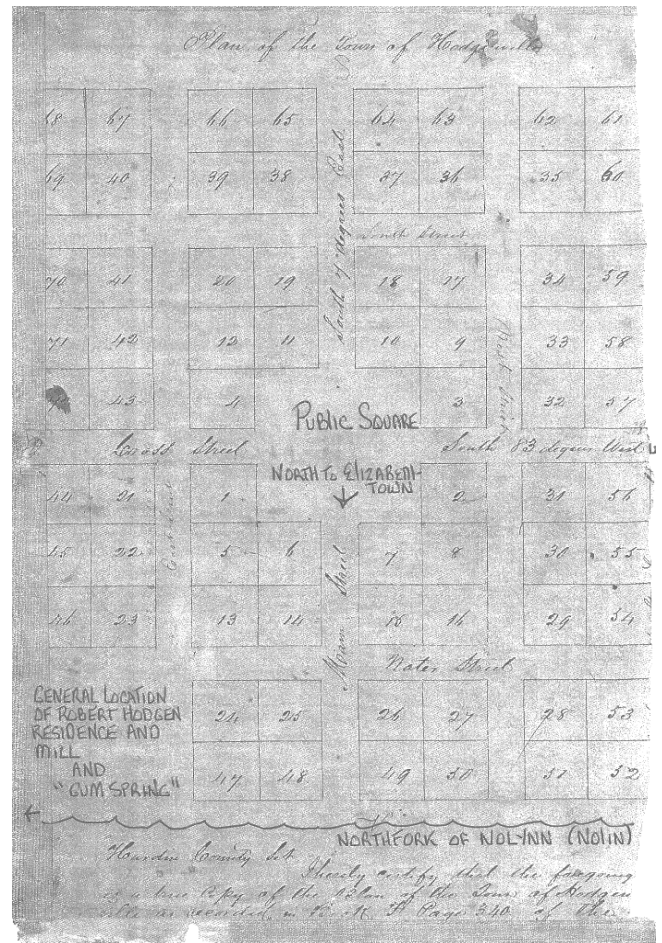 Plan of the Town of Hodgenville
68 67 66 65 64 63 62 61
69 40 39 38 37 36 35 60
South 7 degrees East
South Street
70 41 20 19 18 17 34 59
71 42 12 11 10 9 33 58
43 4 3 32 57
West Street
PUBLIC SQUARE
Cross Street South 83 degrees West
NORTH TO ELIZABETH-
TOWN
44 21 1 2 31 56
45 22 5 6 7 8 30 55
46 23 13 14 15 16 29 54
East Street
Main Street
Water Street
GENERAL LOCATION
OF ROBERT HODGEN
RESIDENCE AND
MILL
AND
"GUM SPRING"
24 25 26 27 28 53
47 48 49 50 51 52
NORTHFORK OF NOLYNN (NOLIN)
Hardin County Sct
I hereby certify that the foregoing
is a true Copy of the Plan of the Town of Hodgen
ville as recorded in Page 340 of the